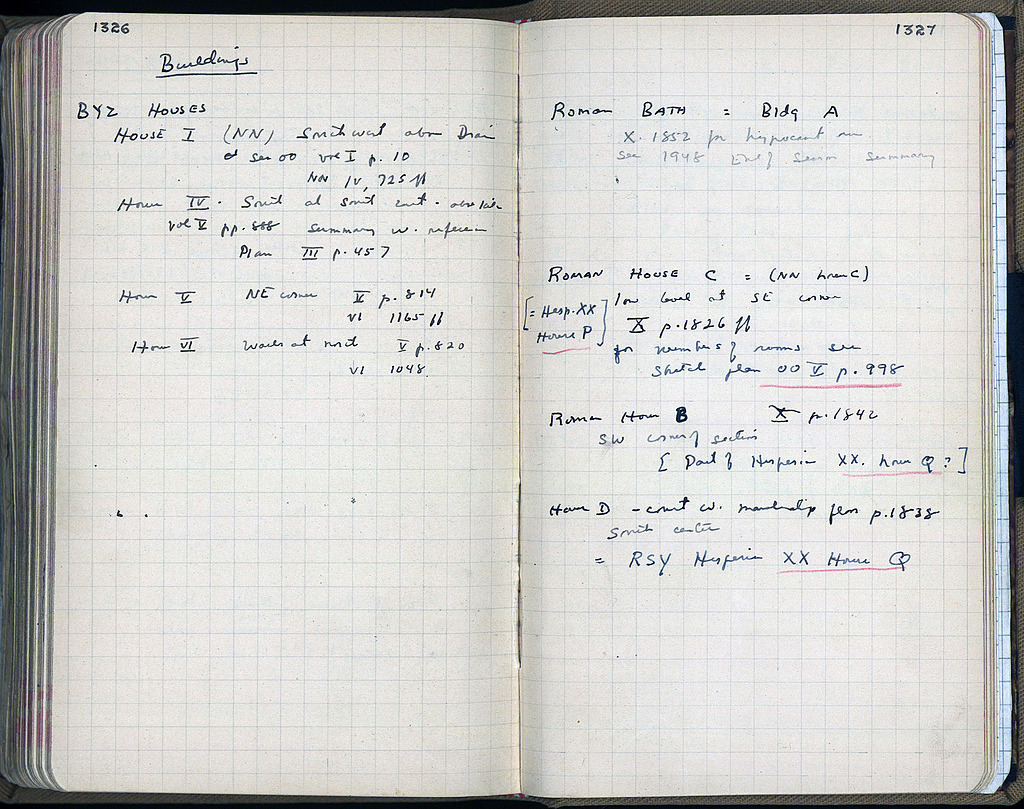 1326
Buildings
BYZ HOUSES
HOUSE I (NN) South west above Drain
see OO vol I p. 10
NN IV, 725 ff
House IV. South at south
vol V pp. 888 summary w. reference
Plan III p. 457
House V NE corner V p. 814
VI 1165 ff
House VI walls at north V p. 820
VI 1048
1327
ROMAN BATH = Bldg A
X. 1852 for hypocaust
see 1948 End of season summary
ROMAN HOUSE C = (NN house C)
low level at SE corner
[= Hesp. XX
House P]
X p. 1826 ff
for numbers of rooms see
sketch plan OO V p. 998
Roman House B X p. 1842
SW corner of section
[Part of Hesperia XX. house Q?]
House D - court w. marble chip floor p. 1838
South center
= RSY Hesperia XX House Q